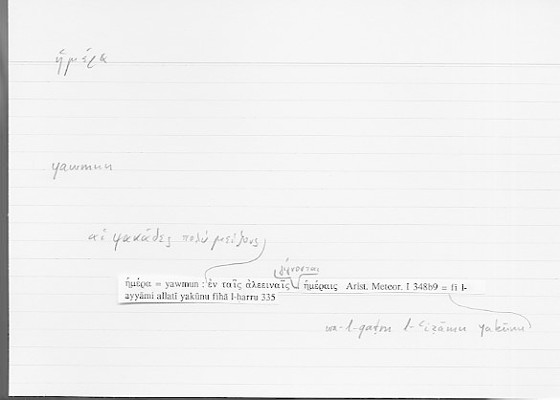 ἡμέρα
yawmun
αἱ ψακάδες πολὺ μείζους
γίγνονται
ἡμέρα = yawmun : ἐν ταῖς ἀλεειναῖς ἡμέραις Arist. Meteor. I 348b9 = fī l-
ayyāmi allatī yakūnu fīhā l-ḥarru 335
wa-l-qaṭru l-ʿiẓāmu yakūnu